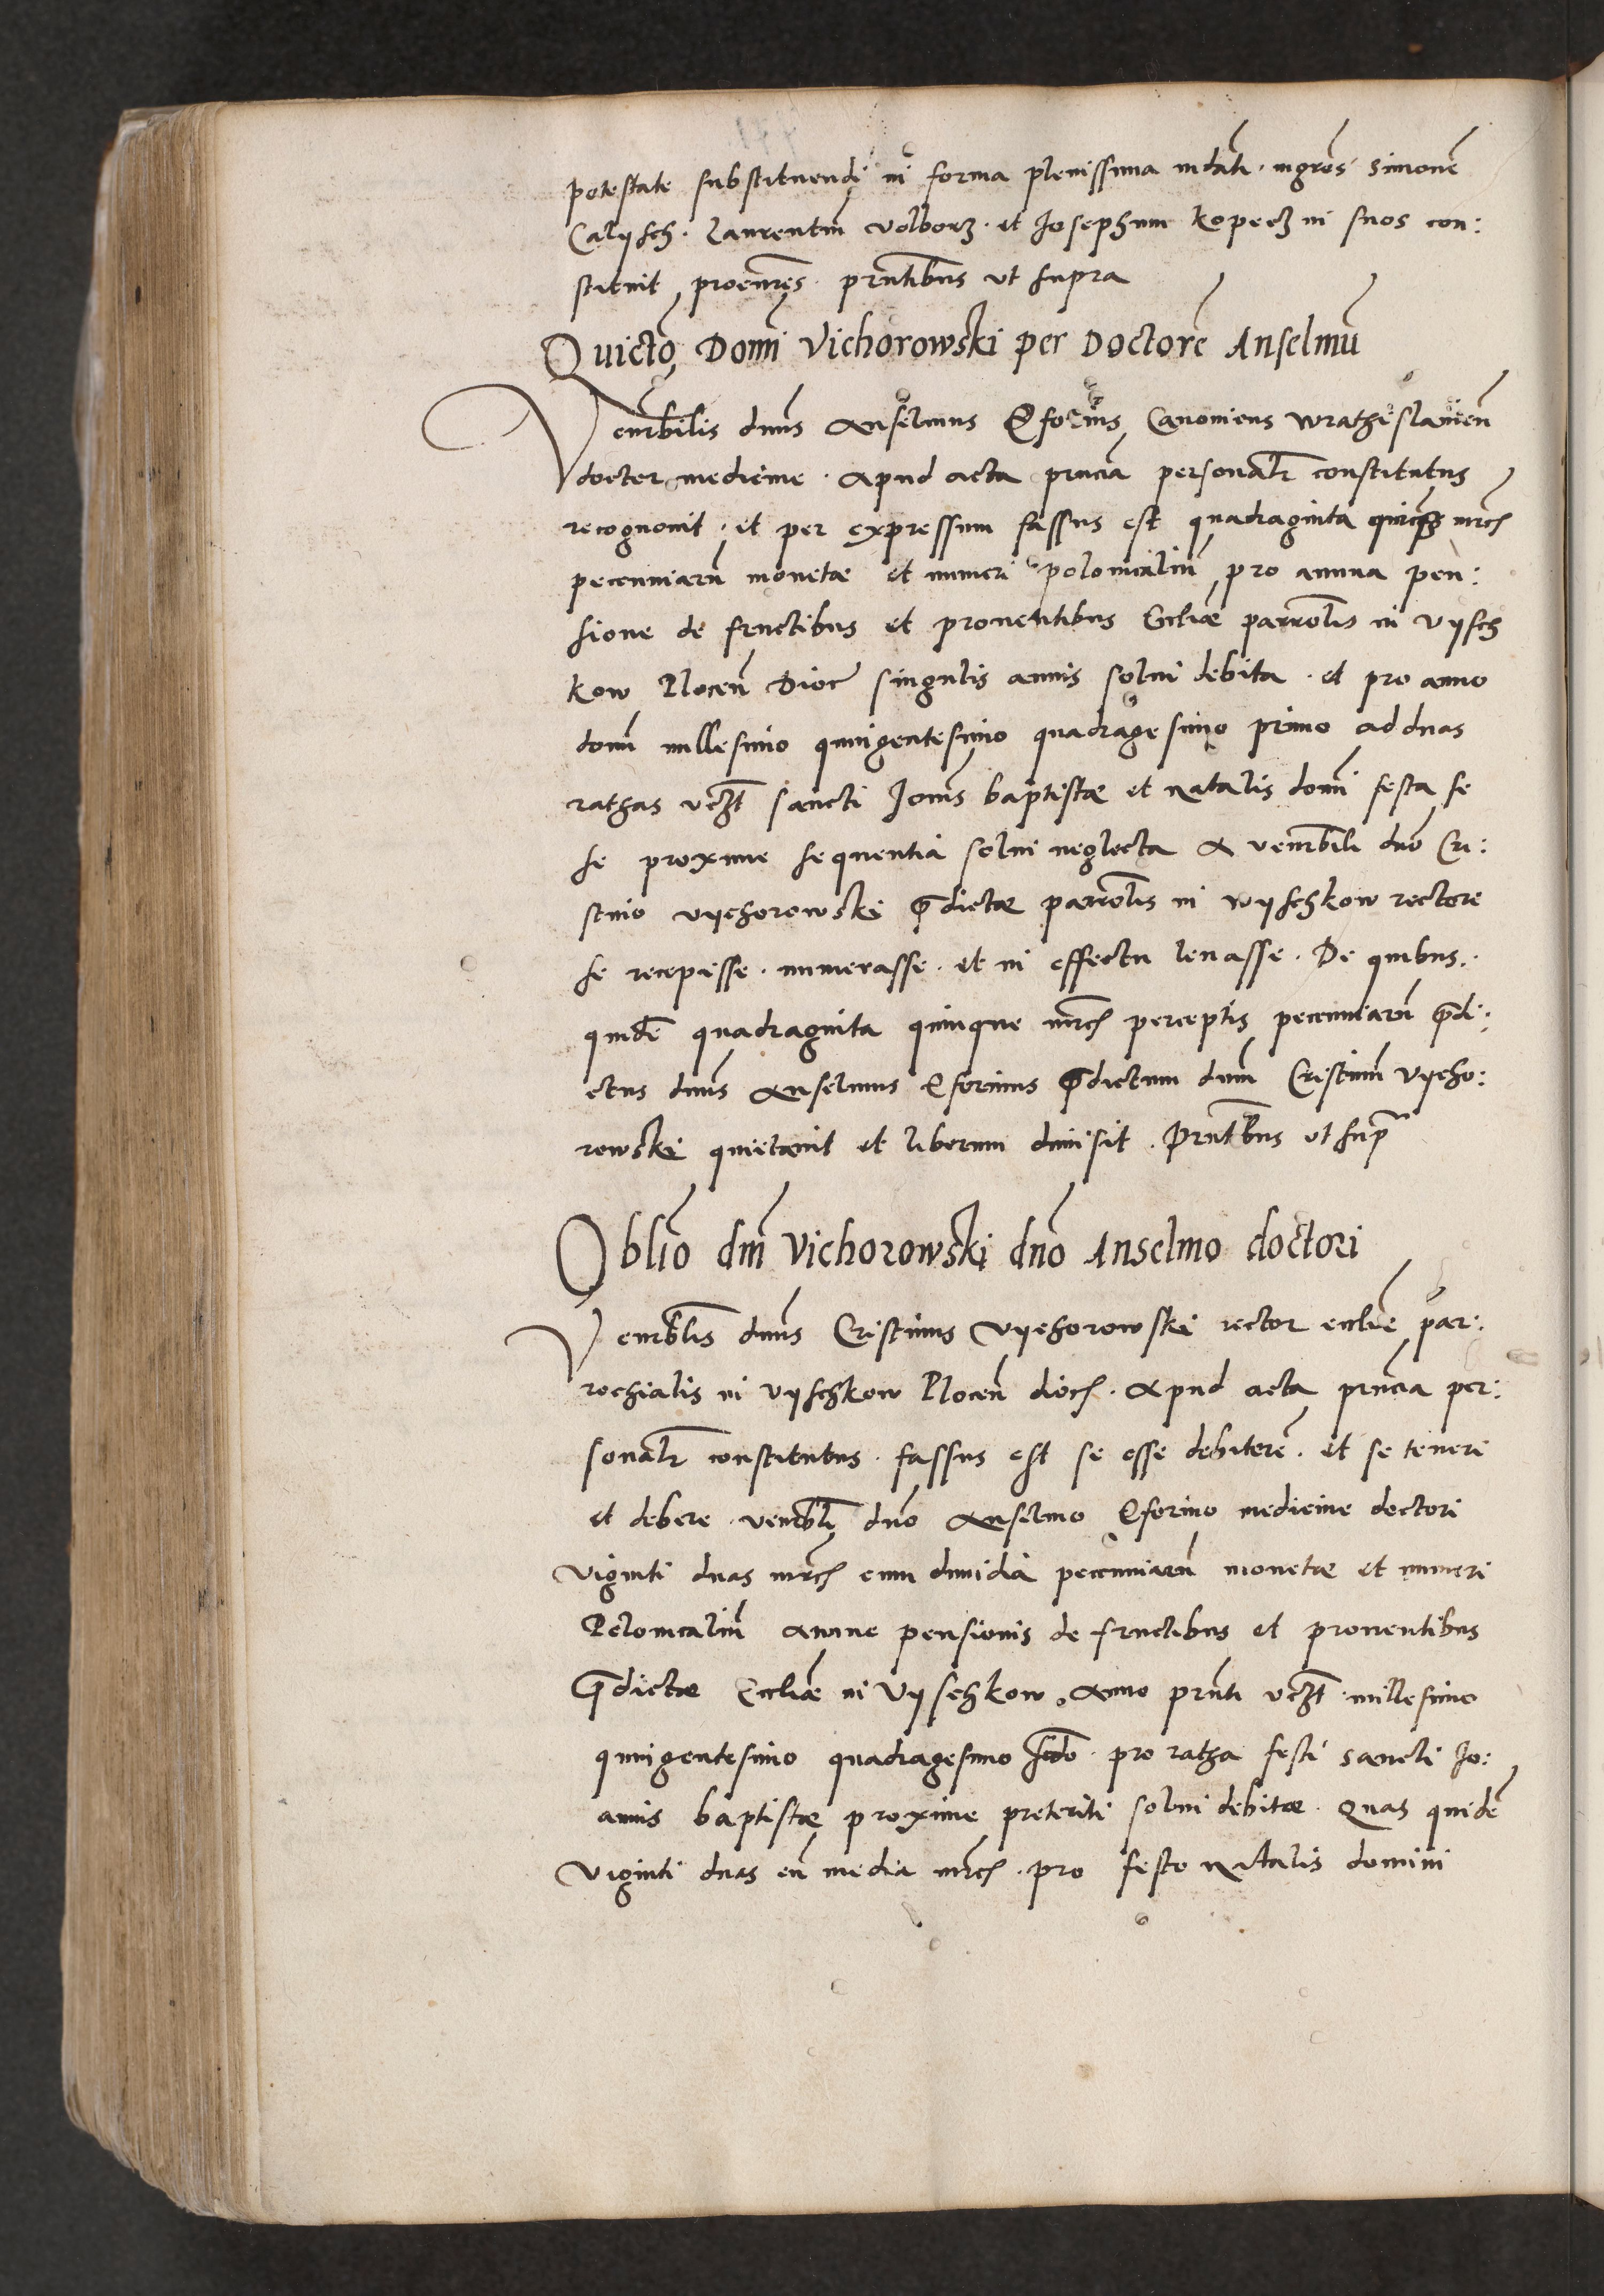 potestate substituendi in forma plenissima mdãti · mgrõs Simonẽ
Calysch · Laurentiũ Volborz · et Josephum Kopecz in suos con:
stituit procurẽs prñtibus ut supra
Quictõ Domi Vichorowski per Doctorẽ Anselmũ
Venerbilis dnũs Anselmus Eforinus Canonicus Wrathislavieñ
doctor medicine · apud acta prñcia personalr̃ constitutus
recognovit · et per expressum fassus est quadraginta quinq̃z mrcs
pecuniarũ monetae et numeri polonicaliũ pro annua pen:
sione de fructibus et proventibus Eccliæ parrolis in Vysch
kow Plocẽn Dioc singulis annis solvi debita · et pro anno
domĩ millesimo quingentesimo quadragesimo primo ad duas
rathas vczt̃ sancti Joñis baptistæ et Natalis domĩ festa se
se proxime sequentia solvi neglecta A venerbili dnõ Cri:
stino Vychorowski p̃dictæ parrolis in Wyschkow rectore
se recepisse · numerasse · et in effectu levasse · De quibus ·
quidẽ quadraginta quinque mrcs perceptis pecuniarũ p̃di:
ctus dnũs Anselmus Eforinus p̃dictum dnũm Cristinũ Vycho:
rowski quietavit et liberum dimisit · Prñtbus ut sup̃
Oblĩo dnĩ Vichorowski dnõ Anselmo doctori
Venerblĩs dnũs Cristinus Vychorowski rector ecclĩe par:
rochialis in Vyschkow Plocẽn diocs · Apud acta prñcia per:
sonalr̃ constitutus · fassus est se esse debitorẽ · et se teneri
et debere · venerbli dnõ Anselmo Eforino medicine doctori
viginti duas mrcs cum dimidia pecuniarũ monetæ et numeri
Polonicaliũ annue pensionis de fructibus et proventibus
p̃dictæ Eccliæ in Vyschkow · Anno prñti vczt̃ · millesimo
quingentesimo quadragesimo scdo · pro ratha festi sancti Jo:
annis baptistæ proxime preteriti solvi debitæ · Quas quidẽ
viginti duas cũ media mrcs · pro festo Natalis domini